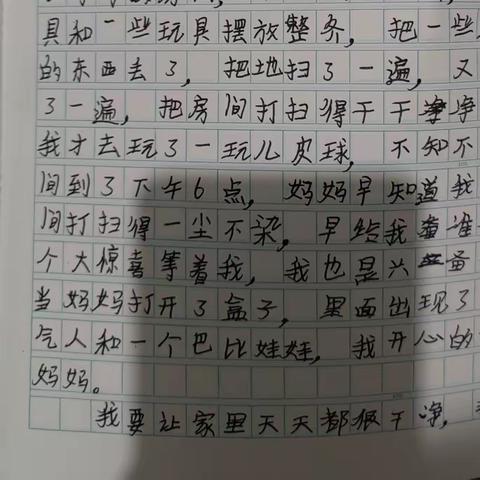 具和一些玩具摆放整齐，把一些
的东西丢了，把地扫了一遍，又
了一遍，把房间打扫得干干净净
我才去玩了一玩儿皮球，不知不
间到了下午6点，妈妈早知道我
间打扫得一尘不染，早给我准
个大惊喜等着我，我也是兴
当妈妈打开了盒子，里面出现了
气人和一个巴比娃娃，我开心的
妈妈。
我要让家里天天都很干净，